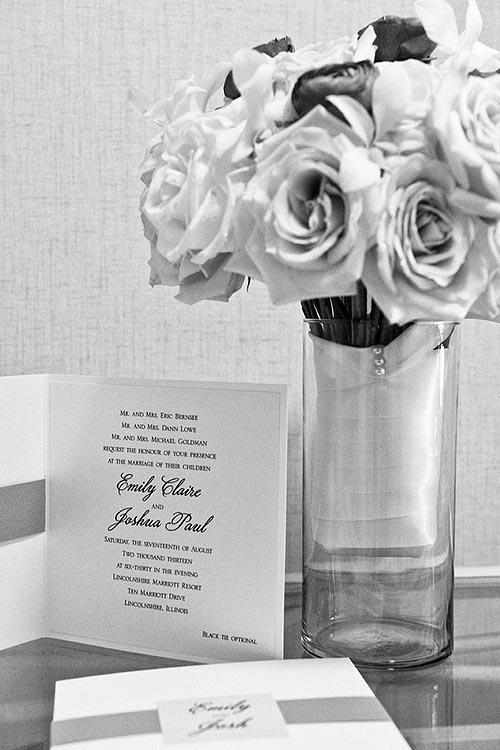 Mr. and Mrs. Eric Bernsee
Mr. and Mrs. Dann Lowe
Mr. and Mrs. Michael Goldman
request the honour of your presence
at the marriage of their children
Emily Claire
and
Joshua Paul
Saturday, the seventeenth of August
Two thousand thirteen
at six-thirty in the evening
Lincolnshire Marriott Resort
Ten Marriott Drive
Lincolnshire, Illinois
Black tie optional
Emily
and
Josh